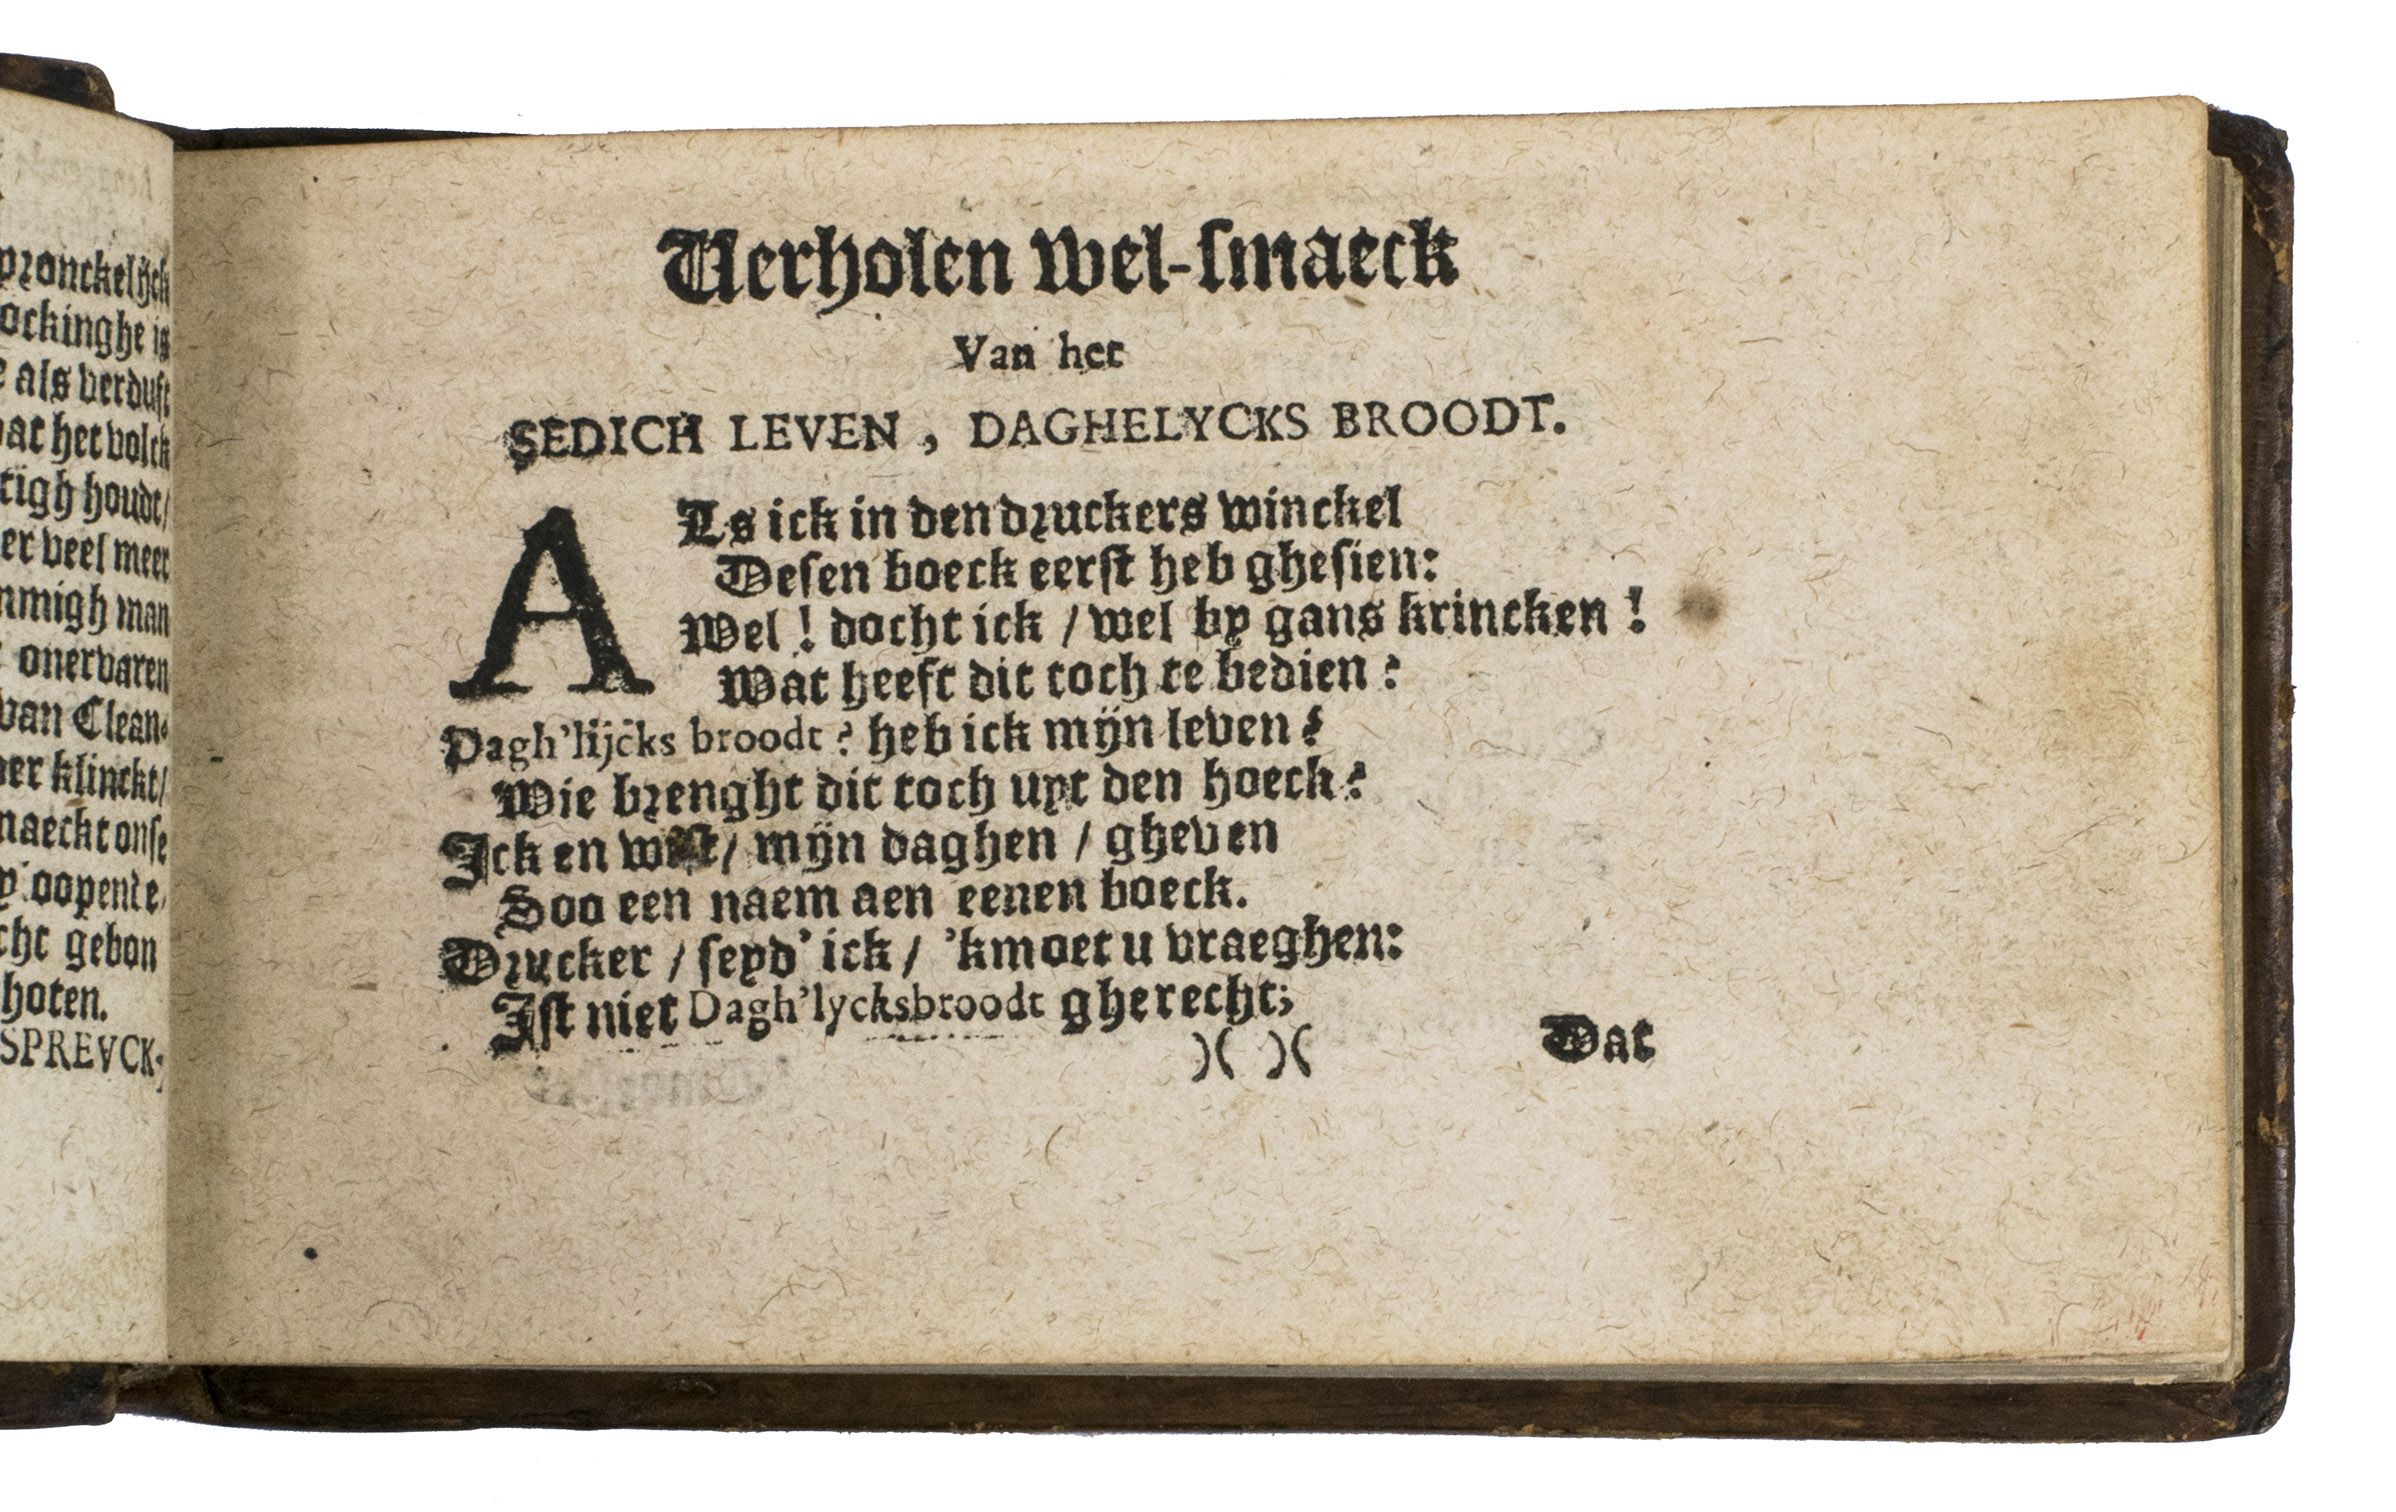 pronckelijck
ockinghe is
als verduft
het volck
tigh houdt/
er veel meer
nmigh man
onervaren
van Clean-
er klinckt/
naeckt onse
cht gebon
hoten.
SPREVCK-
Verholen wel-smaeck
Van het
SEDICH LEVEN, DAGHELYCKS BROODT.
ALs ick in den druckers winckel
Desen boeck eerst heb ghesien:
Wel! docht ick / wel by gans krincken!
Wat heeft dit toch te bedien?
Dagh'lijcks broodt? heb ick mijn leven?
Wie brenght dit toch uyt den hoeck?
Ick en wist/ mijn daghen / gheven
Soo een naem aen eenen boeck.
Drucker / seyd' ick / 'kmoet u vraeghen:
Ist niet Dagh'lycksbroodt gherecht;
)( )(
Dat